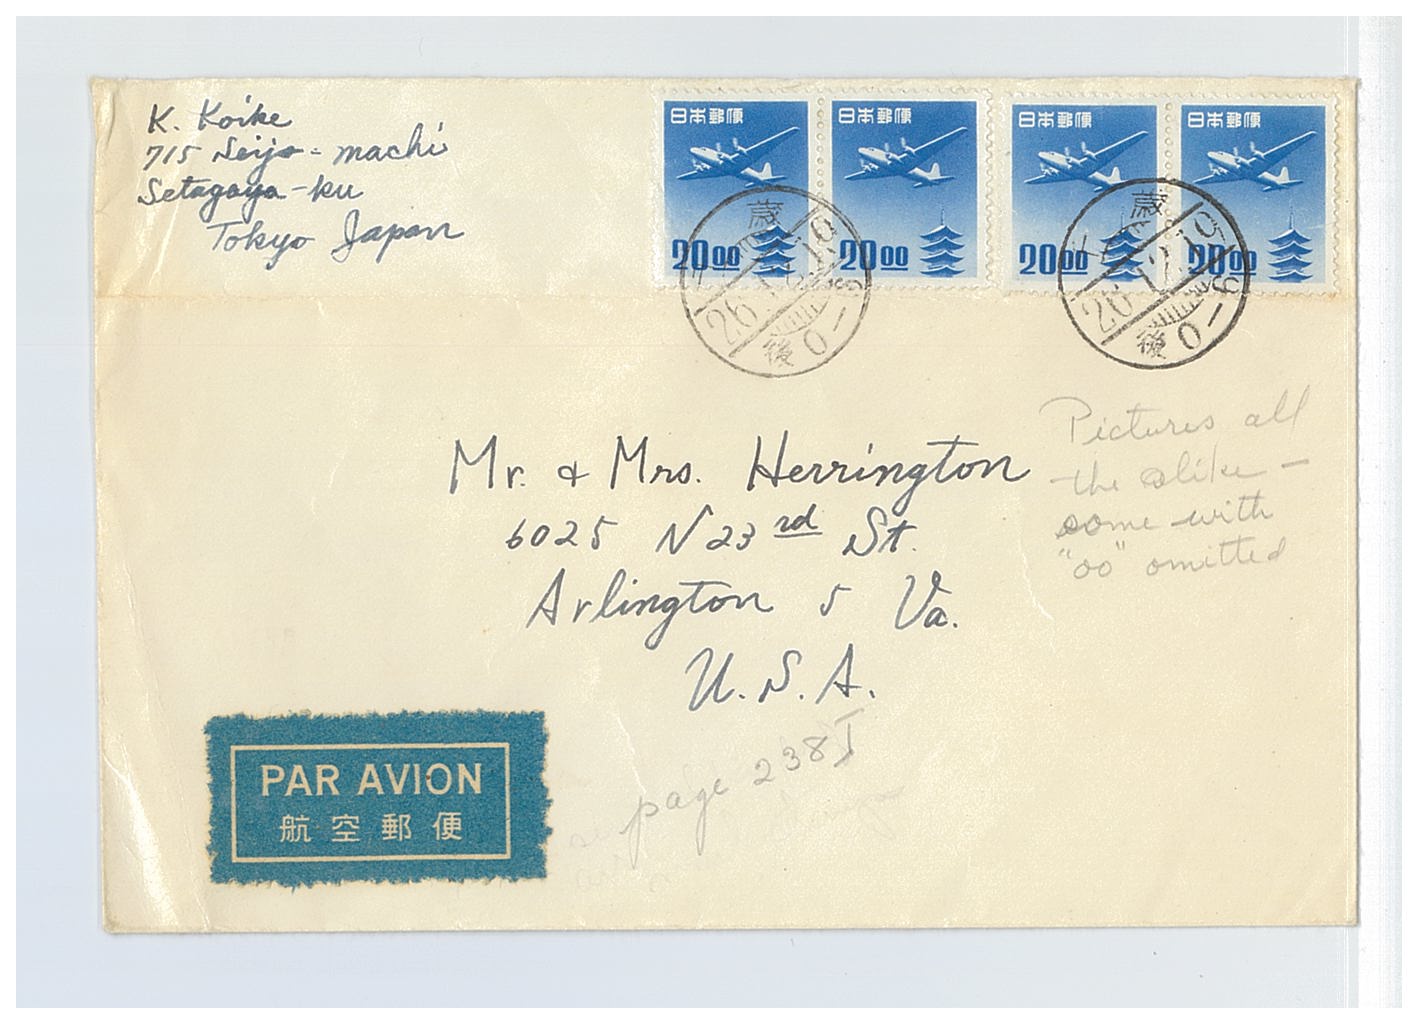 K. Koike
715 Seijo-machi
Setagaya-ku
Tokyo Japan
日本郵便 日本郵便 日本郵便 日本郵便
20 00 20 00 20 00 20 00
26.12.10
後 0-6
26.12.10
後 0-6
Pictures all
the alike -
some with
"00" omitted
Mr. & Mrs. Herrington
6025 N 23rd St.
Arlington 5 Va.
U.S.A.
page 238
PAR AVION
航空郵便